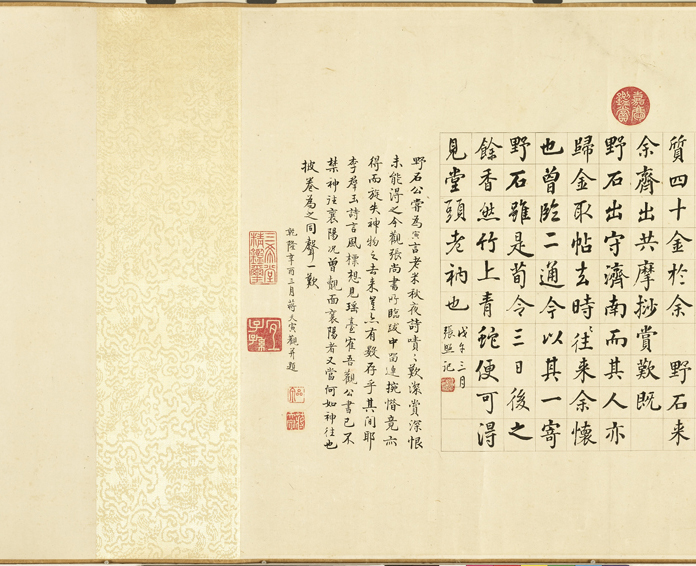 質四十金於余 野石来
余齊出共摩挱賞歎既
野石出守濟南而其人亦
歸金取帖去時往来余懐
也曾臨二通今以其一寄
野石雖是荀令三日後之
餘香然竹上青蛇便可得
見堂頭老衲也
戊午三月
張照記
野石公嘗為寅言老米秋夜詩嘖〻歎潔賞深恨
未能得之今觀張尚書所臨跋中留連捥惜竟亦
得而旋失神物之去来豈亦有数存乎其间耶
李群玉詩言風標想見瑶臺寉吾觀公書已不
禁神往襄陽况曽覩面襄陽者又當何如神往也
披卷為之同聲一歎
乾隆辛酉三月蔣天寅觀并題
嘉慶鑑賞
三希堂精鑑璽
宜子孫